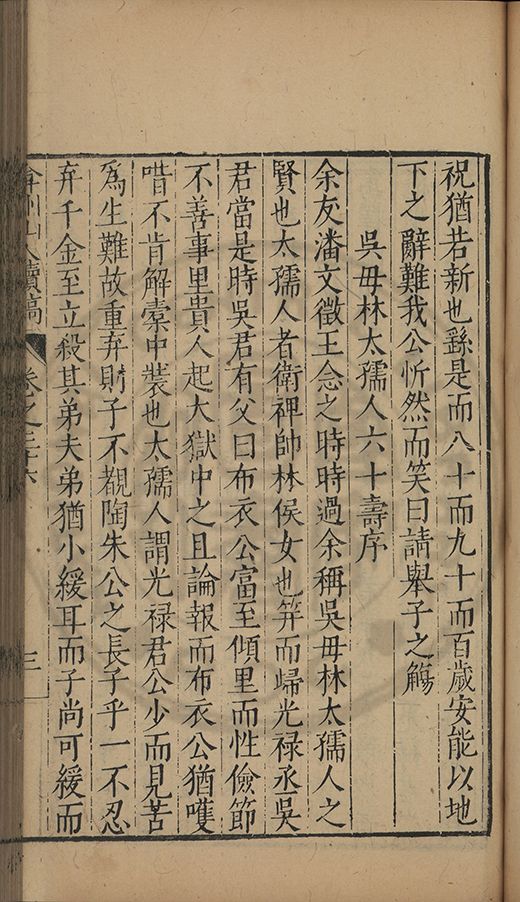 祝猶若新也繇是而八十而九十而百歲安能以地
下之辭難我公忻然而笑曰請舉子之觴
吳母林太孺人六十壽序
余友潘文徵王念之時時過余稱吳母林太孺人之
賢也太孺人者衛裨帥林侯女也笄而歸光祿丞吳
君當是時吳君有父曰布衣公富至傾里而性儉節
不善事里貴人起大獄中之且論報而布衣公猶嘆
唶不肯解橐中裝也太孺人謂光祿君公少而見苦
爲生難故重弃財子不覩陶朱公之長子乎一不忍
弃千金至立殺其弟夫弟猶小緩耳而子尚可緩而
弇州山人續稿 卷之三十六 三